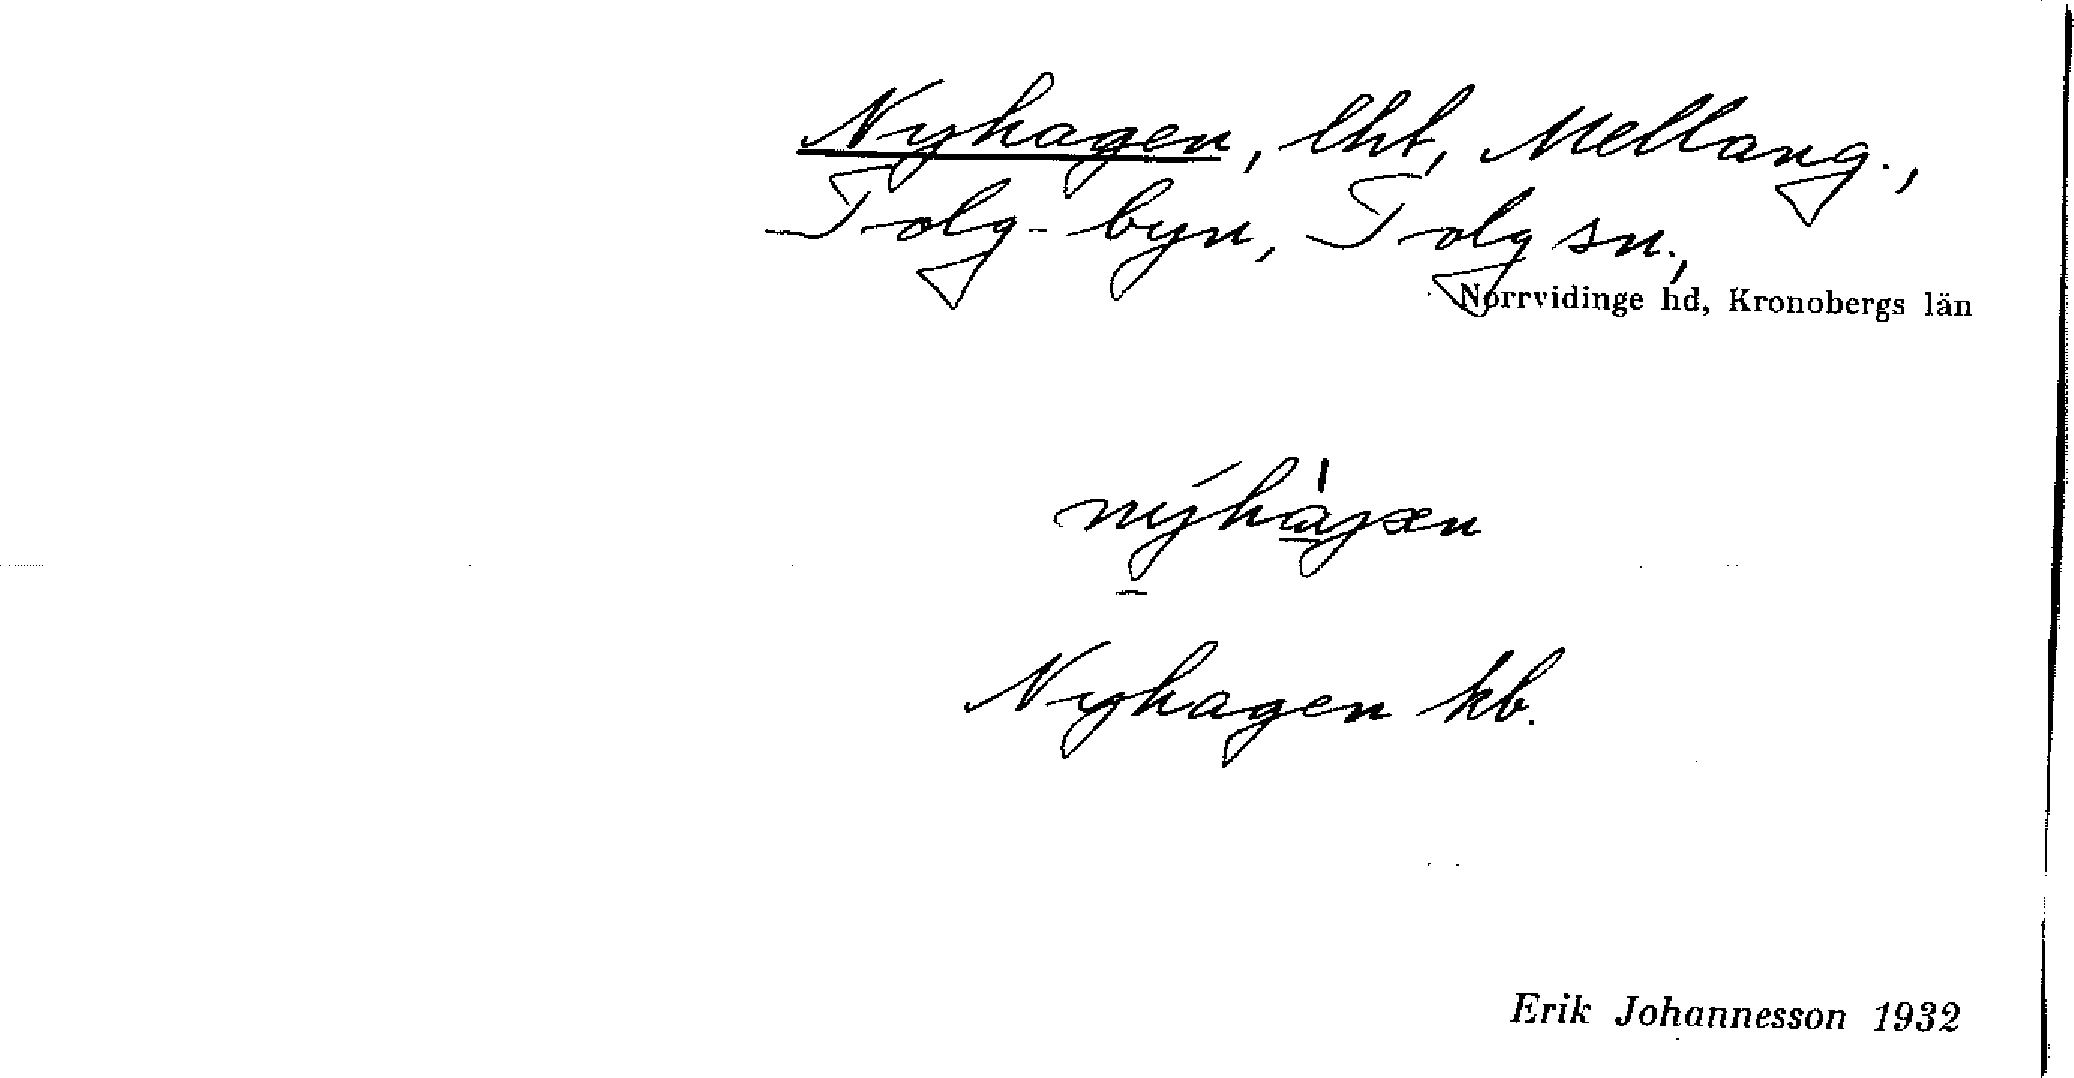 Nyhagen, lht, Mellang.,
Tolg-byn, Tolg sn.,
Norrvidinge hd, Kronobergs län
Nyhagen kb.
Erik Johannesson 1932